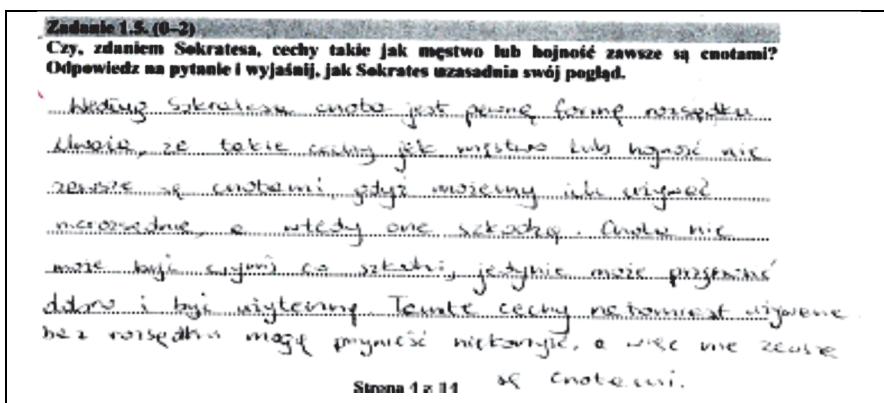 Zadanie 1.5. (0–2)
Czy, zdaniem Sokratesa, cechy takie jak męstwo lub hojność zawsze są cnotami?
Odpowiedz na pytanie i wyjaśnij, jak Sokrates uzasadnia swój pogląd.
Według Sokratesa cnota jest pewną formą rozsądku
Uważa, że takie cechy jak męstwo lub hojność nie
zawsze są cnotami, gdyż możemy ich używać
nierozsądnie, a wtedy one szkodzą. Cnota nie
może być czymś co szkodzi, jedynie może przynosić
dobro i być użyteczną. Tamte cechy natomiast używane
bez rozsądku mogą przynieść niekorzyść, a więc nie zawsze
są cnotami.
Strona 4 z 11